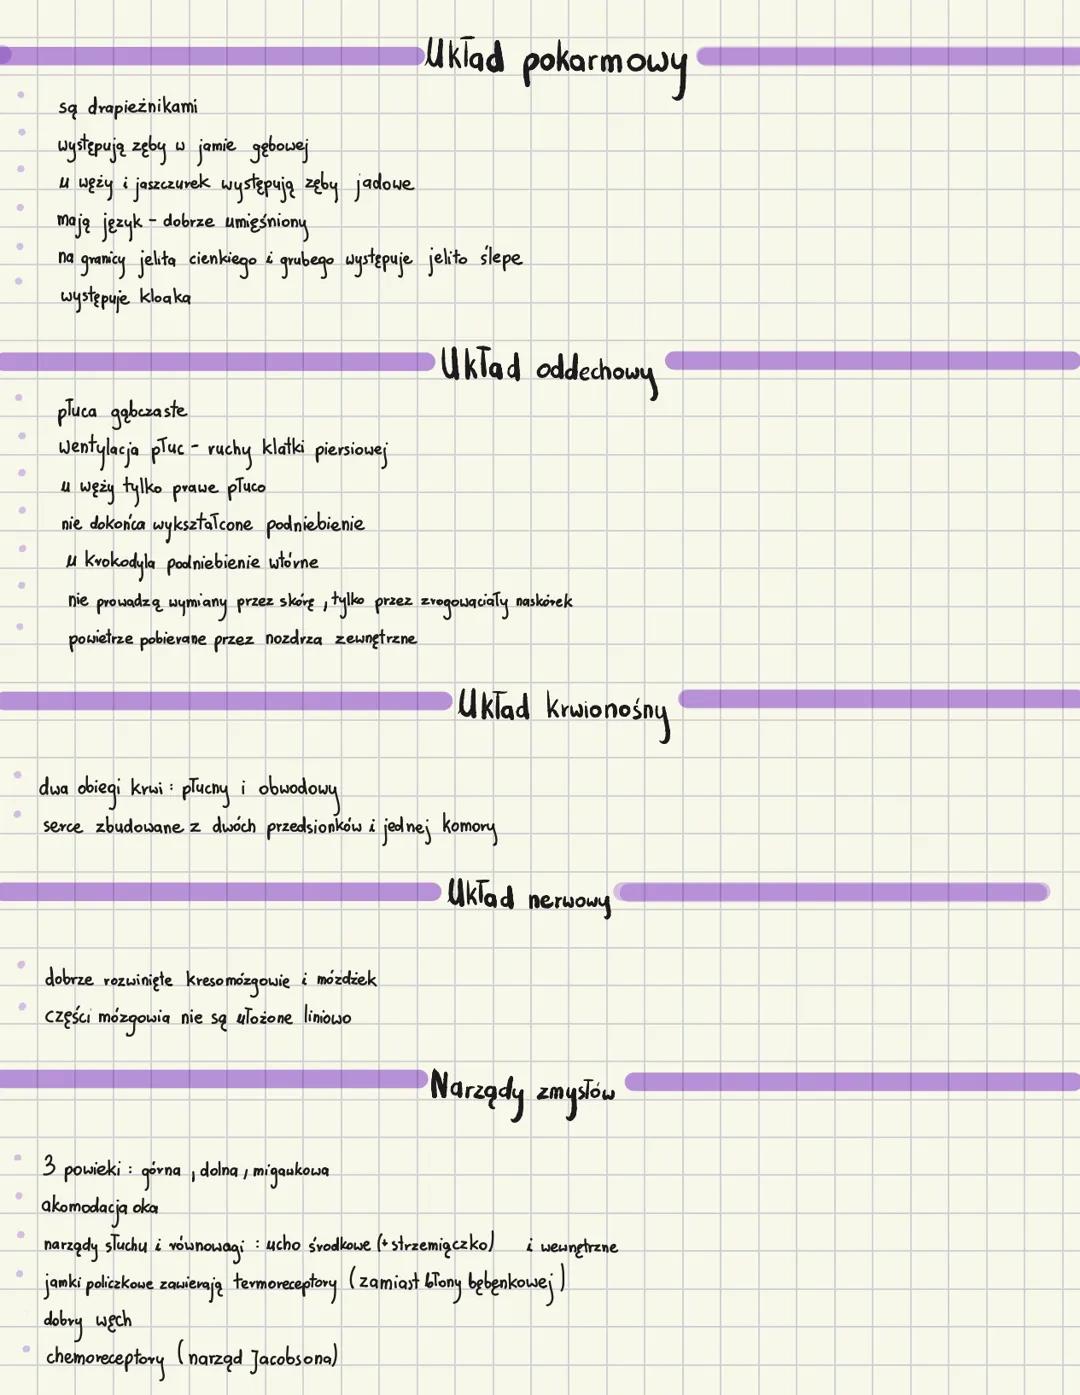 Układ pokarmowy
są drapieżnikami
występują zęby w jamie gębowej
u węży i jaszczurek występują zęby jadowe
mają język - dobrze umięśniony
na granicy jelita cienkiego i grubego występuje jelito ślepe
występuje kloaka
Układ oddechowy
płuca gąbczaste
wentylacja płuc - ruchy klatki piersiowej
u węży tylko prawe płuco
nie dokońca wykształcone podniebienie
u krokodyla podniebienie wtórne
nie prowadzą wymiany przez skórę, tylko przez zrogowaciały naskórek
powietrze pobierane przez nozdrza zewnętrzne
Układ krwionośny
dwa obiegi krwi: płucny i obwodowy
serce zbudowane z dwóch przedsionków i jednej komory
Układ nerwowy
dobrze rozwinięte kresomózgowie i móżdżek
części mózgowia nie są ułożone liniowo
Narządy zmysłów
3 powieki: górna, dolna, migawkowa
akomodacja oka
narządy słuchu i równowagi: ucho środkowe (+ strzemiączko) i wewnętrzne
jamki policzkowe zawierają termoreceptory (zamiast błony bębenkowej)
dobry węch
chemoreceptory (narząd Jacobsona)